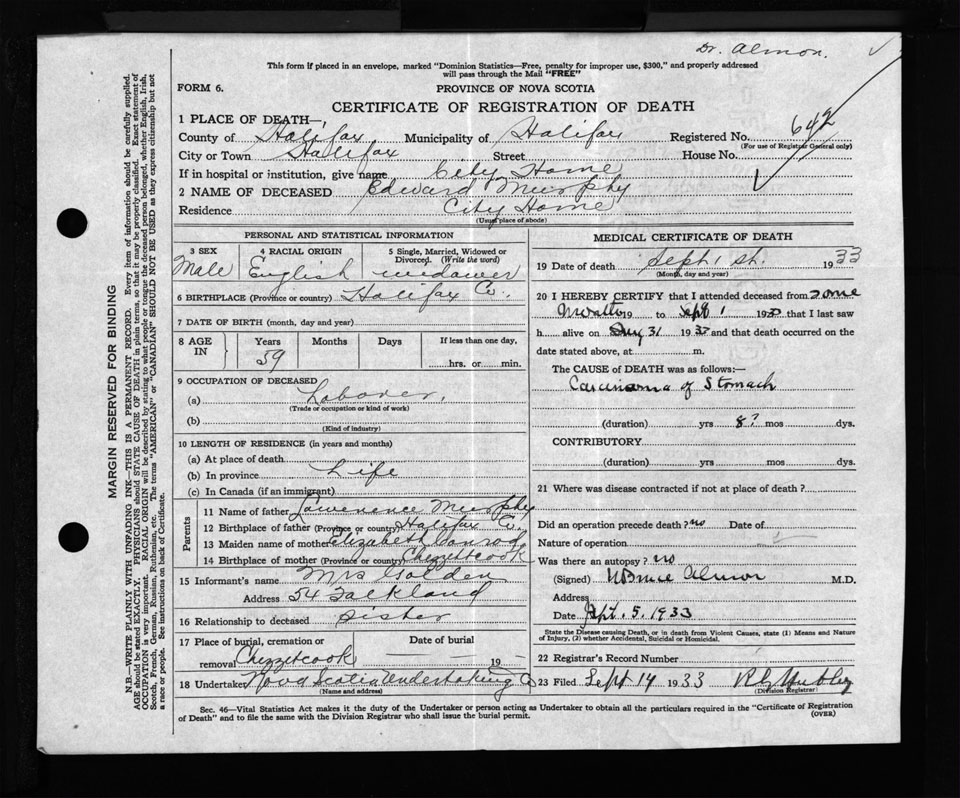 Dr. Almon.
This form if placed in an envelope, marked "Dominion Statistics—Free, penalty for improper use, $300," and properly addressed
will pass through the Mail "FREE"
FORM 6.
PROVINCE OF NOVA SCOTIA
CERTIFICATE OF REGISTRATION OF DEATH
1 PLACE OF DEATH—
County of Halifax Municipality of Halifax Registered No. 642
(For use of Registrar General only)
City or Town Halifax Street House No.
If in hospital or institution, give name City Home
2 NAME OF DECEASED Edward Murphy
Residence City Home
(Usual place of abode)
PERSONAL AND STATISTICAL INFORMATION
3 SEX Male
4 RACIAL ORIGIN English
5 Single, Married, Widowed or Divorced. (Write the word) widower
6 BIRTHPLACE (Province or country) Halifax Co.
7 DATE OF BIRTH (month, day and year)
8 AGE IN Years 59 Months Days If less than one day, hrs. or min.
9 OCCUPATION OF DECEASED
(a) Laborer.
(Trade or occupation or kind of work)
(b)
(Kind of industry)
10 LENGTH OF RESIDENCE (in years and months)
(a) At place of death
(b) In province Life
(c) In Canada (if an immigrant)
Parents
11 Name of father Lawrence Murphy
12 Birthplace of father (Province or country) Halifax Co.
13 Maiden name of mother Elizabeth Conrod
14 Birthplace of mother (Province or country) Chezzetcook
15 Informant's name Mrs Golden
Address 54 Falkland
16 Relationship to deceased sister
17 Place of burial, cremation or removal Chezzetcook
Date of burial 19
18 Undertaker Nova Scotia Undertaking Co
(Name and address)
MEDICAL CERTIFICATE OF DEATH
19 Date of death Sept 1 st. 1933
(Month, day and year)
20 I HEREBY CERTIFY that I attended deceased from some
19 to Sept 1 193 that I last saw
h alive on Aug 31 193 and that death occurred on the
date stated above, at m.
The CAUSE of DEATH was as follows:—
Carcinoma of Stomach
(duration) yrs 8? mos dys.
CONTRIBUTORY
(duration) yrs mos dys.
21 Where was disease contracted if not at place of death?
Did an operation precede death? no Date of
Nature of operation
Was there an autopsy? no
(Signed) Almon M.D.
Address
Date Sept. 5. 1933
State the Disease causing Death, or in death from Violent Causes, state (1) Means and Nature
of Injury, (2) whether Accidental, Suicidal or Homicidal.
22 Registrar's Record Number
23 Filed Sept 14 1933
(Division Registrar)
Sec. 46—Vital Statistics Act makes it the duty of the Undertaker or person acting as Undertaker to obtain all the particulars required in the "Certificate of Registration
of Death" and to file the same with the Division Registrar who shall issue the burial permit.
(OVER)
MARGIN RESERVED FOR BINDING
N.B.—WRITE PLAINLY WITH UNFADING INK—THIS IS A PERMANENT RECORD. Every item of information should be carefully supplied.
AGE should be stated EXACTLY. PHYSICIANS should STATE CAUSE OF DEATH in plain terms, so that it may be properly classified. Exact statement of
OCCUPATION is very important. RACIAL ORIGIN will be described by stating to what people or tongue the deceased person belonged, whether English, Irish,
Scotch, French, German, Russian, Ruthenian, etc. The terms "AMERICAN" or "CANADIAN" SHOULD NOT BE USED as they express citizenship but not
a race or people. See instructions on back of Certificate.